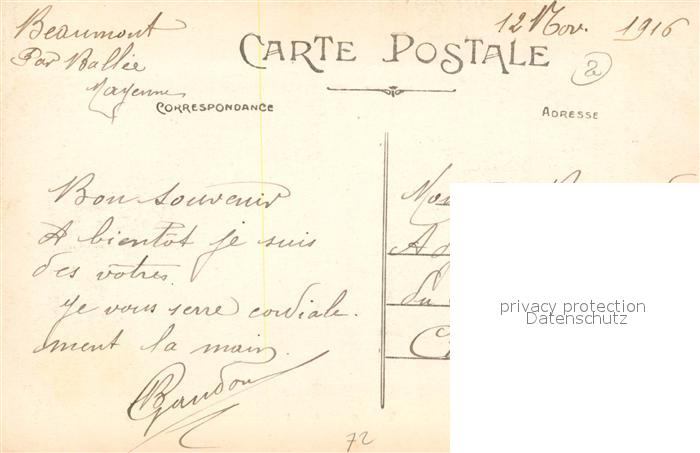 Beaumont
Par Ballée
Mayenne
12 Nov. 1916
CARTE POSTALE
2
CORRESPONDANCE
ADRESSE
Bon souvenir
A bientôt je suis
des vôtres.
je vous serre cordiale-
ment la main.
72
privacy protection
Datenschutz